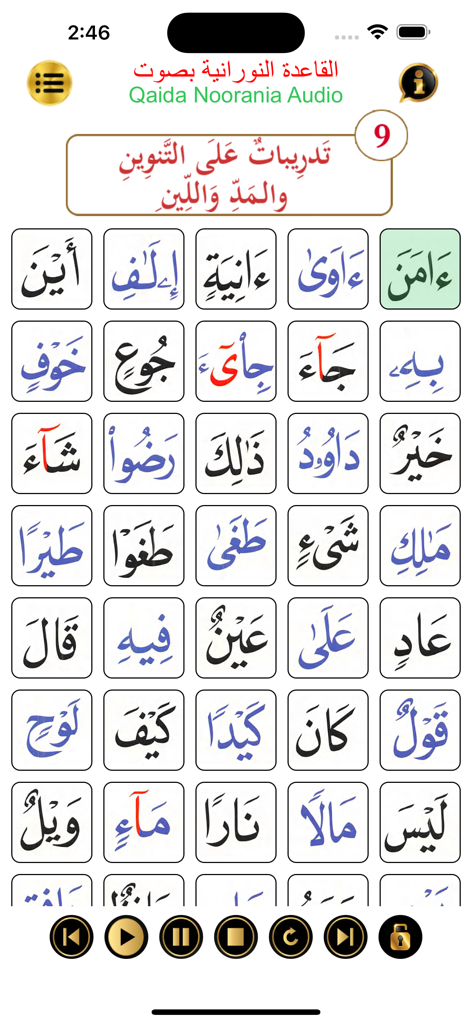 2:46
القاعدة النورانية بصوت
Qaida Noorania Audio
9
تَدرِيباتٌ عَلَى التَّنوِينِ
والمَدِّ وَاللِّينِ
ءَامَنَ ءَاوَىٰ ءَانِيَةٍ إِۦلَٰفِ أَيْنَ
بِهِۦ جَآءَ جِاْىٓءَ جُوعٍ خَوْفٍ
خَيْرٌ دَاوُۥدُ ذَٰلِكَ رَضُواْ شَآءَ
مَٰلِكِ شَىْءٍ طَغَىٰ طَغَوْا طَيْرًا
عَادٍ عَلَىٰ عَيْنٌ فِيهِ قَالَ
قَوْلٌ كَانَ كَيْدًا كَيْفَ لَوْحٍ
لَيْسَ مَالًا نَارًا مَآءٍ وَيْلٌ